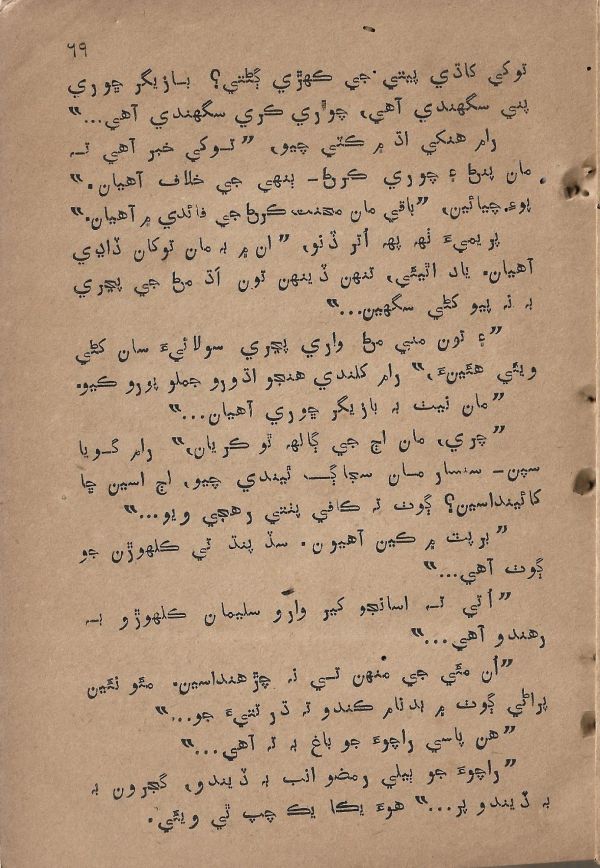 ٦٩
توکي کاڌي پيتي جي ڪهڙي ڳڻتي؟ بازيگر چوري
پني سگهندي آهي، چوري ڪري سگهندي آهي..."
رام هنکي اڌ ۾ ڪٽي چيو، "توکي خبر آهي تہ
مان پنڻ ۽ چوري ڪرڻ - ٻنهي جي خلاف آهيان."
پوءِ چيائين، "باقي مان محنت ڪرڻ جي فائدي ۾ آهيان."
پريميءَ ٺهہ پهہ اُتر ڏنو، "ان ۾ بہ مان توکان ڏاڍي
آهيان. ياد اٿيئي، تنهن ڏينهن تون اَڌ مڻ جي ڀڃري
بہ نہ پيو کڻي سگهين..."
"۽ تون منجي مڻ واري ڀڃري سولائيءَ سان کڻي
ويئي هئينءَ،" رام کلندي هنجو اڌورو جملو پورو ڪيو.
"مان نيٺ بہ بازيگر ڇوري آهيان..."
"چري، مان اڄ جي ڳالهہ ٿو ڪريان،" رام گويا
سپن - سنسار مان سجاڳ ٿيندي چيو، اڄ اسين ڇا
کائينداسين؟ ڳوٺ تہ ڪافي پٺتي رهجي ويو..."
"برپٽ ۾ ڪين آهيون. سڏ پنڌ تي ڪلهوڙن جو
ڳوٺ آهي..."
"اُتي تہ اسانجو کير وارو سليمان ڪلهوڙو بہ
رهندو آهي..."
"اُن مٺي جي منهن تي نہ چڙهنداسين. مٿو نئين
پراڻي ڳوٺ ۾ بدنام ڪندو تہ ڌر تتيءَ جو..."
"هن پاسي راڄوءَ جو باغ بہ تہ آهي..."
"راڄوءَ جو ٻيلي رمضو انب بہ ڏيندو، گجرون بہ
بہ ڏيندو پر..." هوءَ يڪا يڪ چپ ٿي ويئي.